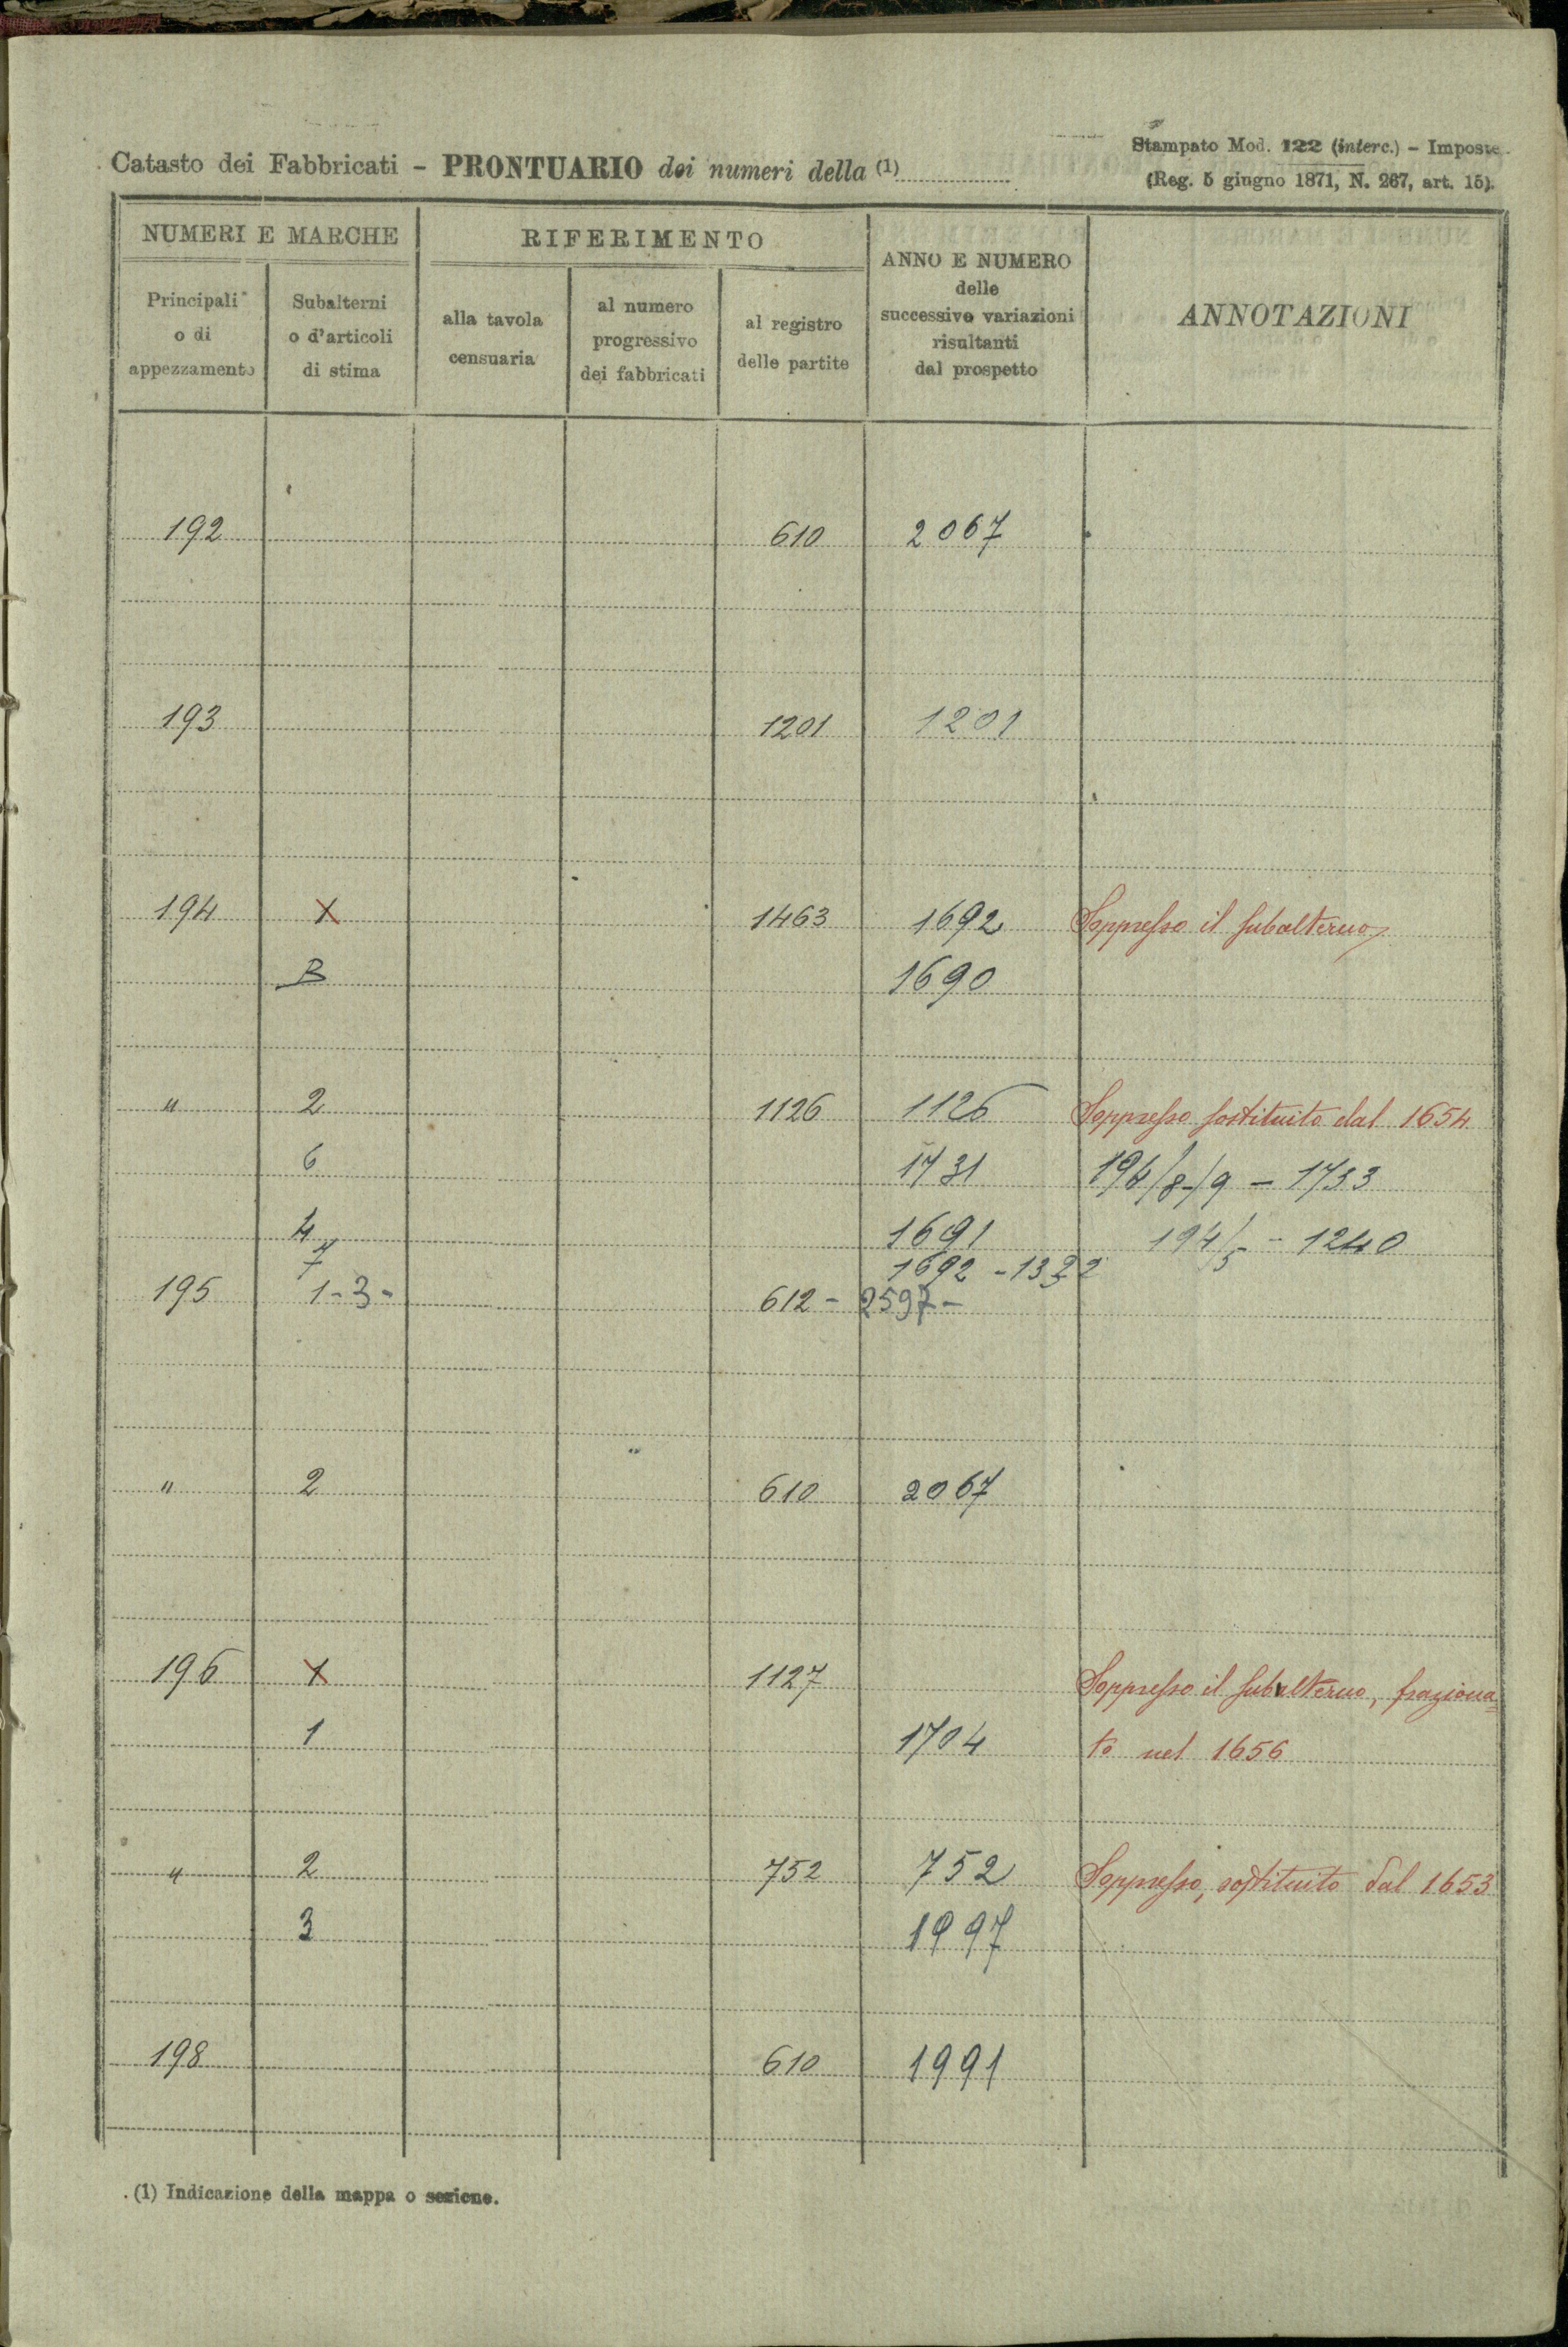 Catasto dei Fabbricati - PRONTUARIO dei numeri della (1)
Stampato Mod. 122 (interc.) - Imposte.
(Reg. 5 giugno 1871, N. 267, art. 15).
NUMERI E MARCHE
RIFERIMENTO
ANNO E NUMERO
delle
successive variazioni
risultanti
dal prospetto
ANNOTAZIONI
Principali
o di
appezzamento
Subalterni
o d'articoli
di stima
alla tavola
censuaria
al numero
progressivo
dei fabbricati
al registro
delle partite
192 610 2067
193 1201 1201
194 1463 1692 Soppresso il subalterno
B 1690
" 2 1126 1126 Soppresso sostituito dal 1654
6 1731 194/8-/9 - 1733
4 1691 194/5 - 1240
7 1692 - 1322
195 1-3- 612 - 2597 -
" 2 610 2067
196 1 1127 Soppresso il subalterno, fraziona=
1 1704 to nel 1656
" 2 752 752 Soppresso, sostituito dal 1653
3 1997
198 610 1991
(1) Indicazione della mappa o sezione.